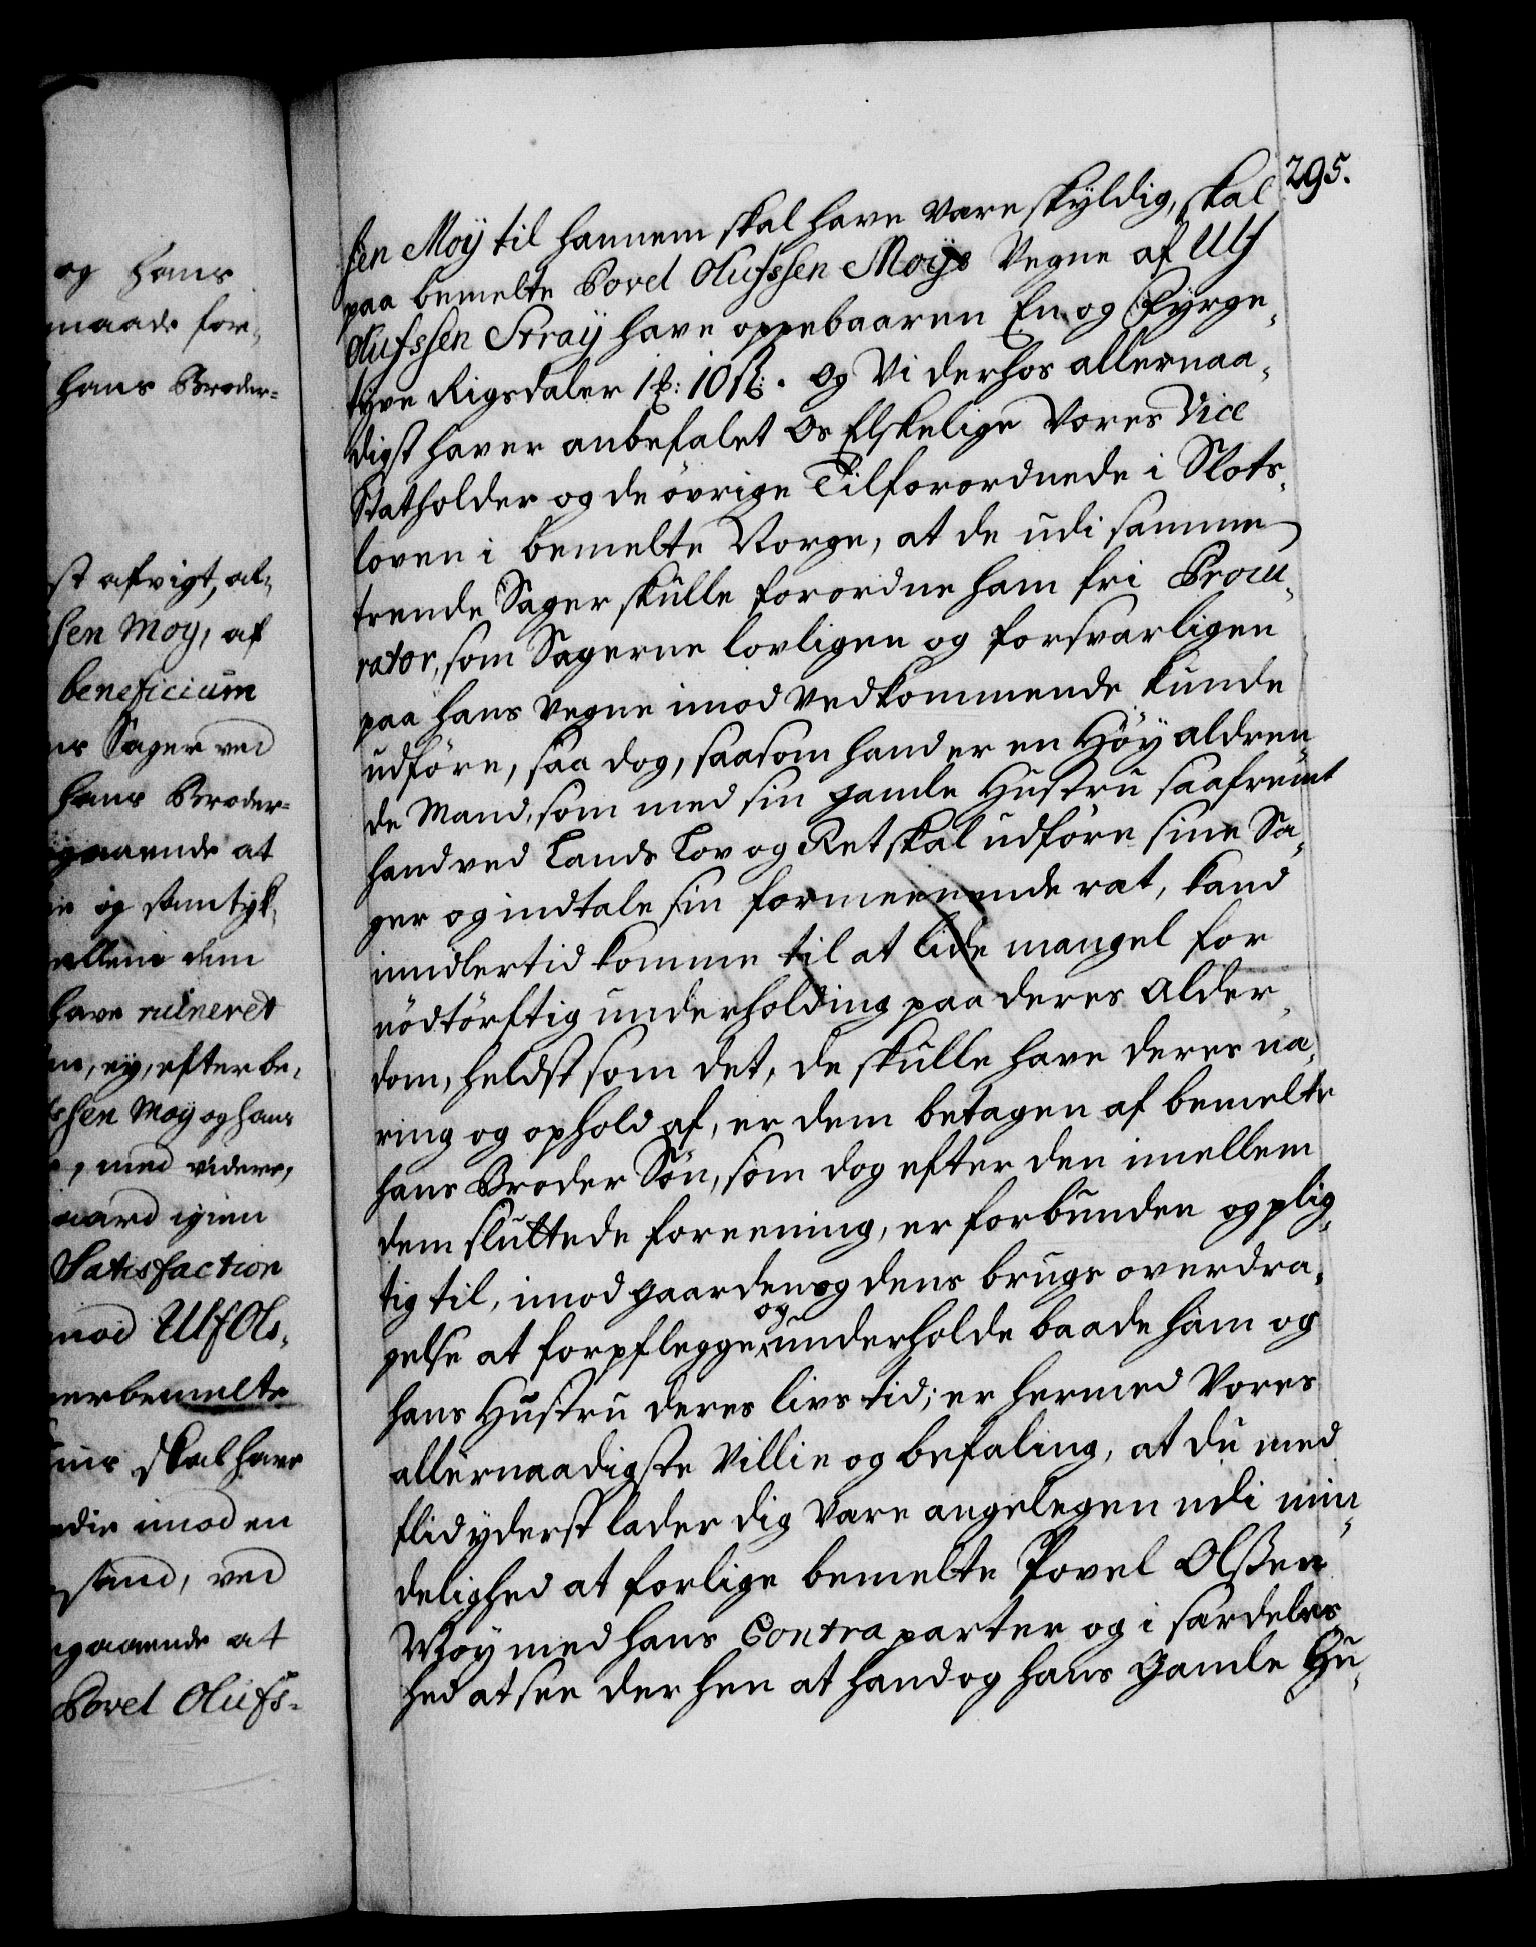 og hans
maade for-
hans Broder-
st afvigt, al-
sen Moy, af
beneficium
Sager ved
hans Broder-
gaaende at
og samtyk-
allene dem
have ruineret
ey, efter be-
sen Moy og hans
, med videre,
gaard igien
Satisfaction
mod Ulf Ols-
erbemelte
skal have
imod en
stand, ved
gaaende at
Povel Olufs-
295.
sen Moÿ til hannem skal have være skyldig, skal
paa bemelte Povel Olufssen Moÿs Vegne af Ulf
Olufssen Straÿ have oppebaaren En og Fyrge-
tyve Rigsdaler 1 ℔: 10 ß:. Og Vi derhos allernaa-
digst haver anbefalet Os Elskelige Vores Vice
Statholder og de övrige Tilforordnede i Slots-
loven i bemelte Norge, at de udi samme
trende Sager skulle forordne ham fri Procu-
rator, som Sagerne lovligen og forsvarligen
paa hans vegne imod Vedkommende kunde
udföre, saa dog, saasom hand er en Höy aldren-
de Mand, som med sin gamle Hustru saafremt
hand ved Lands Lov og Ret skal udföre sine Sa-
ger og indtale sin formeenende rat, kand
imidlertid komme til at lide mangel for
nödtörftig underholding paa deres Alder-
dom, heldst som det, de skulle have deres næ-
ring og ophold af, er dem betagen af bemelte
hans Broder Sön, som dog efter den imellem
dem sluttede foreening, er forbunden og plig-
tig til, imod gaarden og dens brugs overdra-
gelse at forpflegge og underholde baade ham og
hans Hustru deres livs tid; er hermed Vores
allernaadigste Villie og befaling, at du med
flid yderst lader dig være angelegen udi min-
delighed at forlige bemelte Povel Olssen
Moy med hans Contraparter og i særdeles-
hed at see der hen at hand og hans gamle Hu-